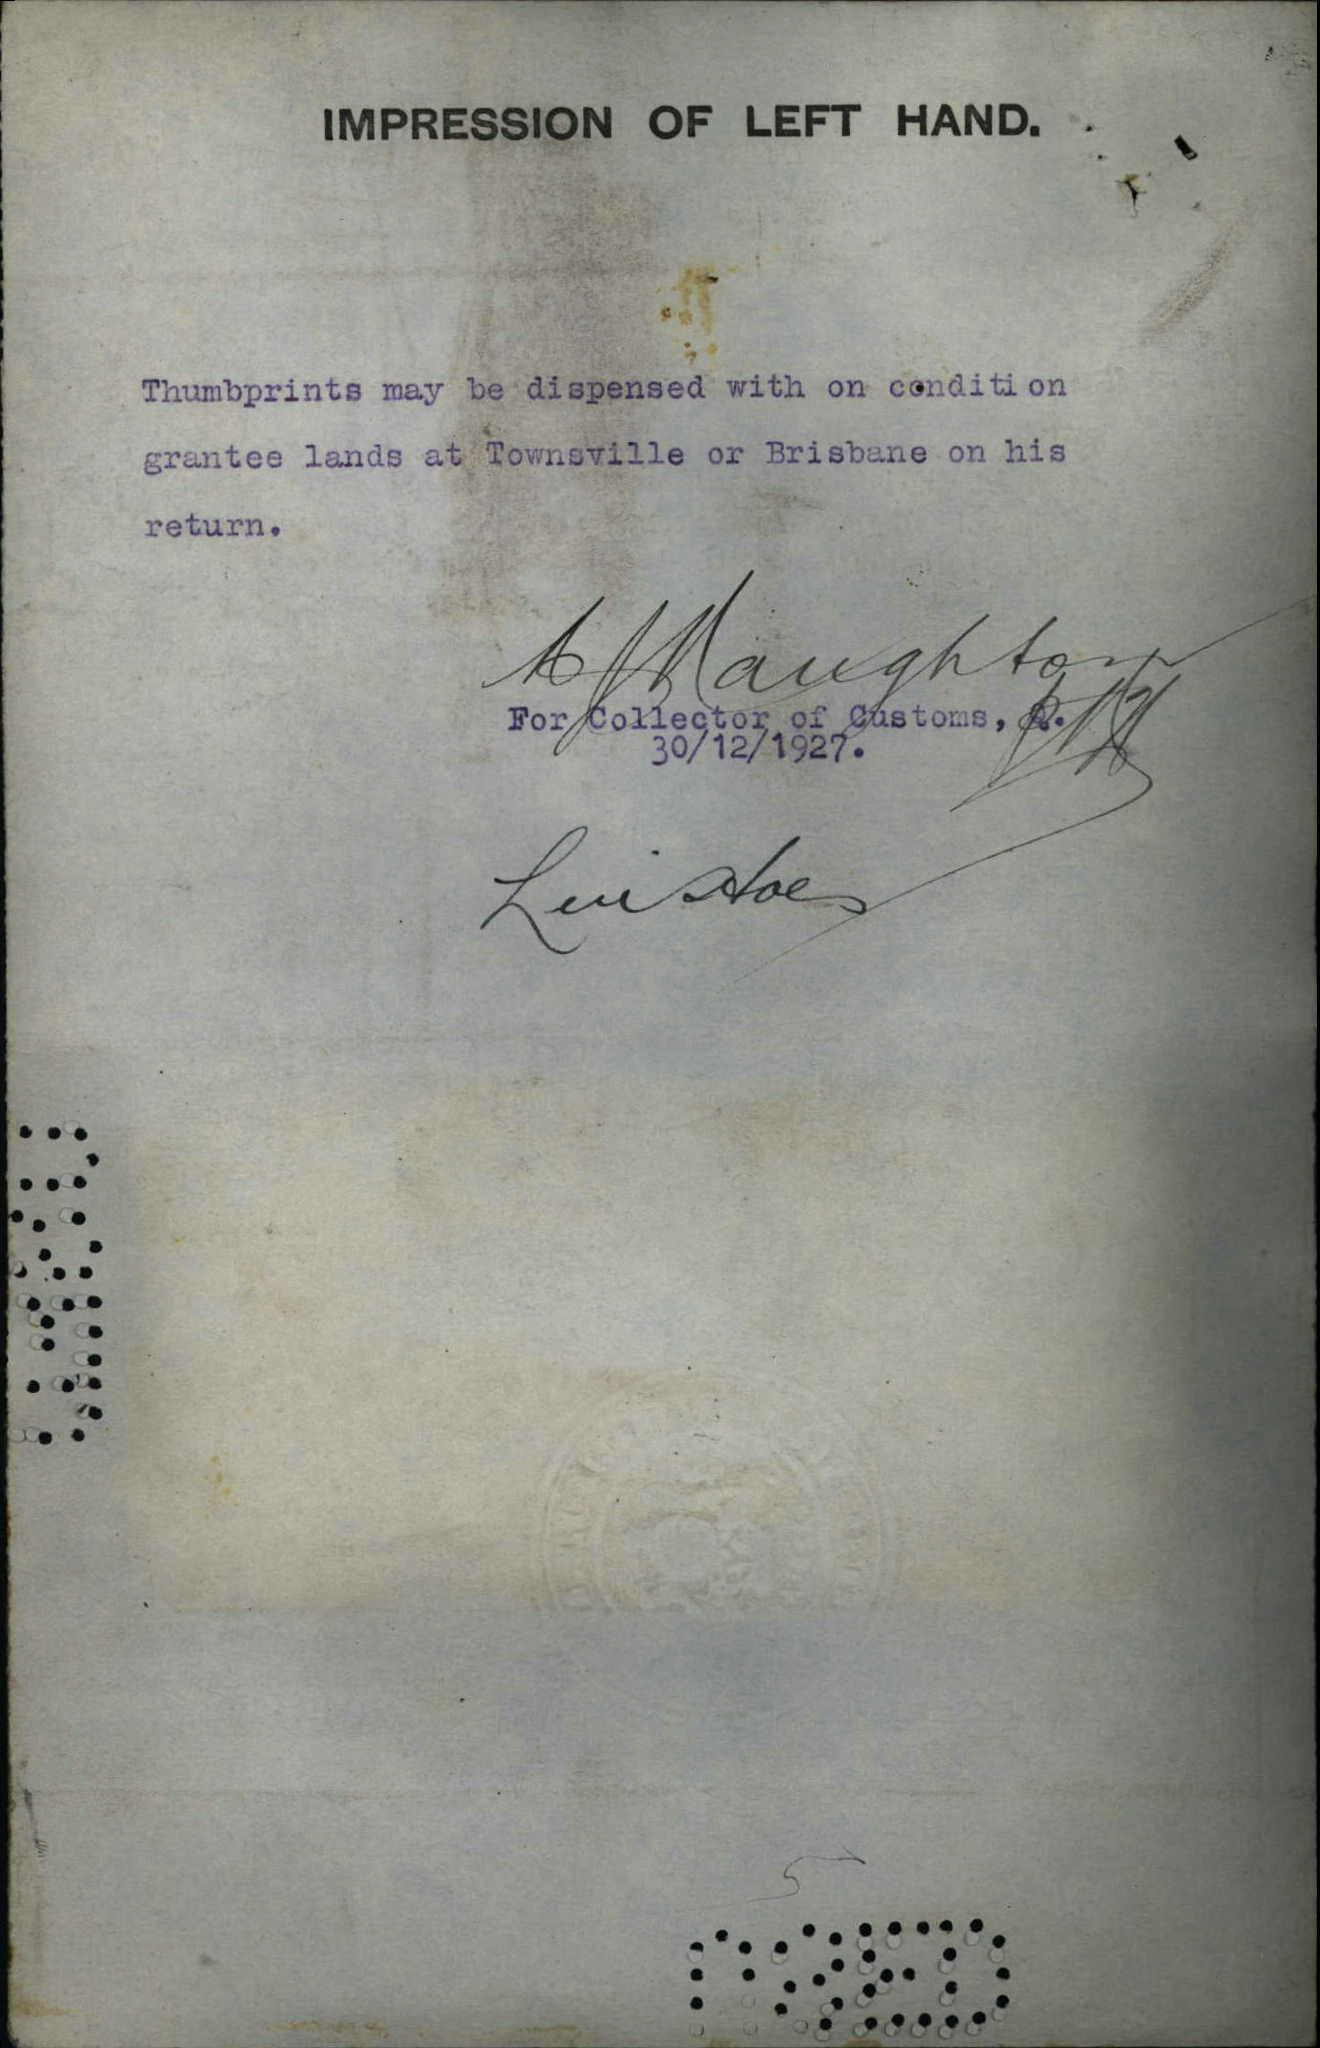 IMPRESSION OF LEFT HAND.
Thumbprints may be dispensed with on condition
grantee lands at Townsville or Brisbane on his
return.
Naughton
For Collector of Customs, Q.
30/12/1927.
5